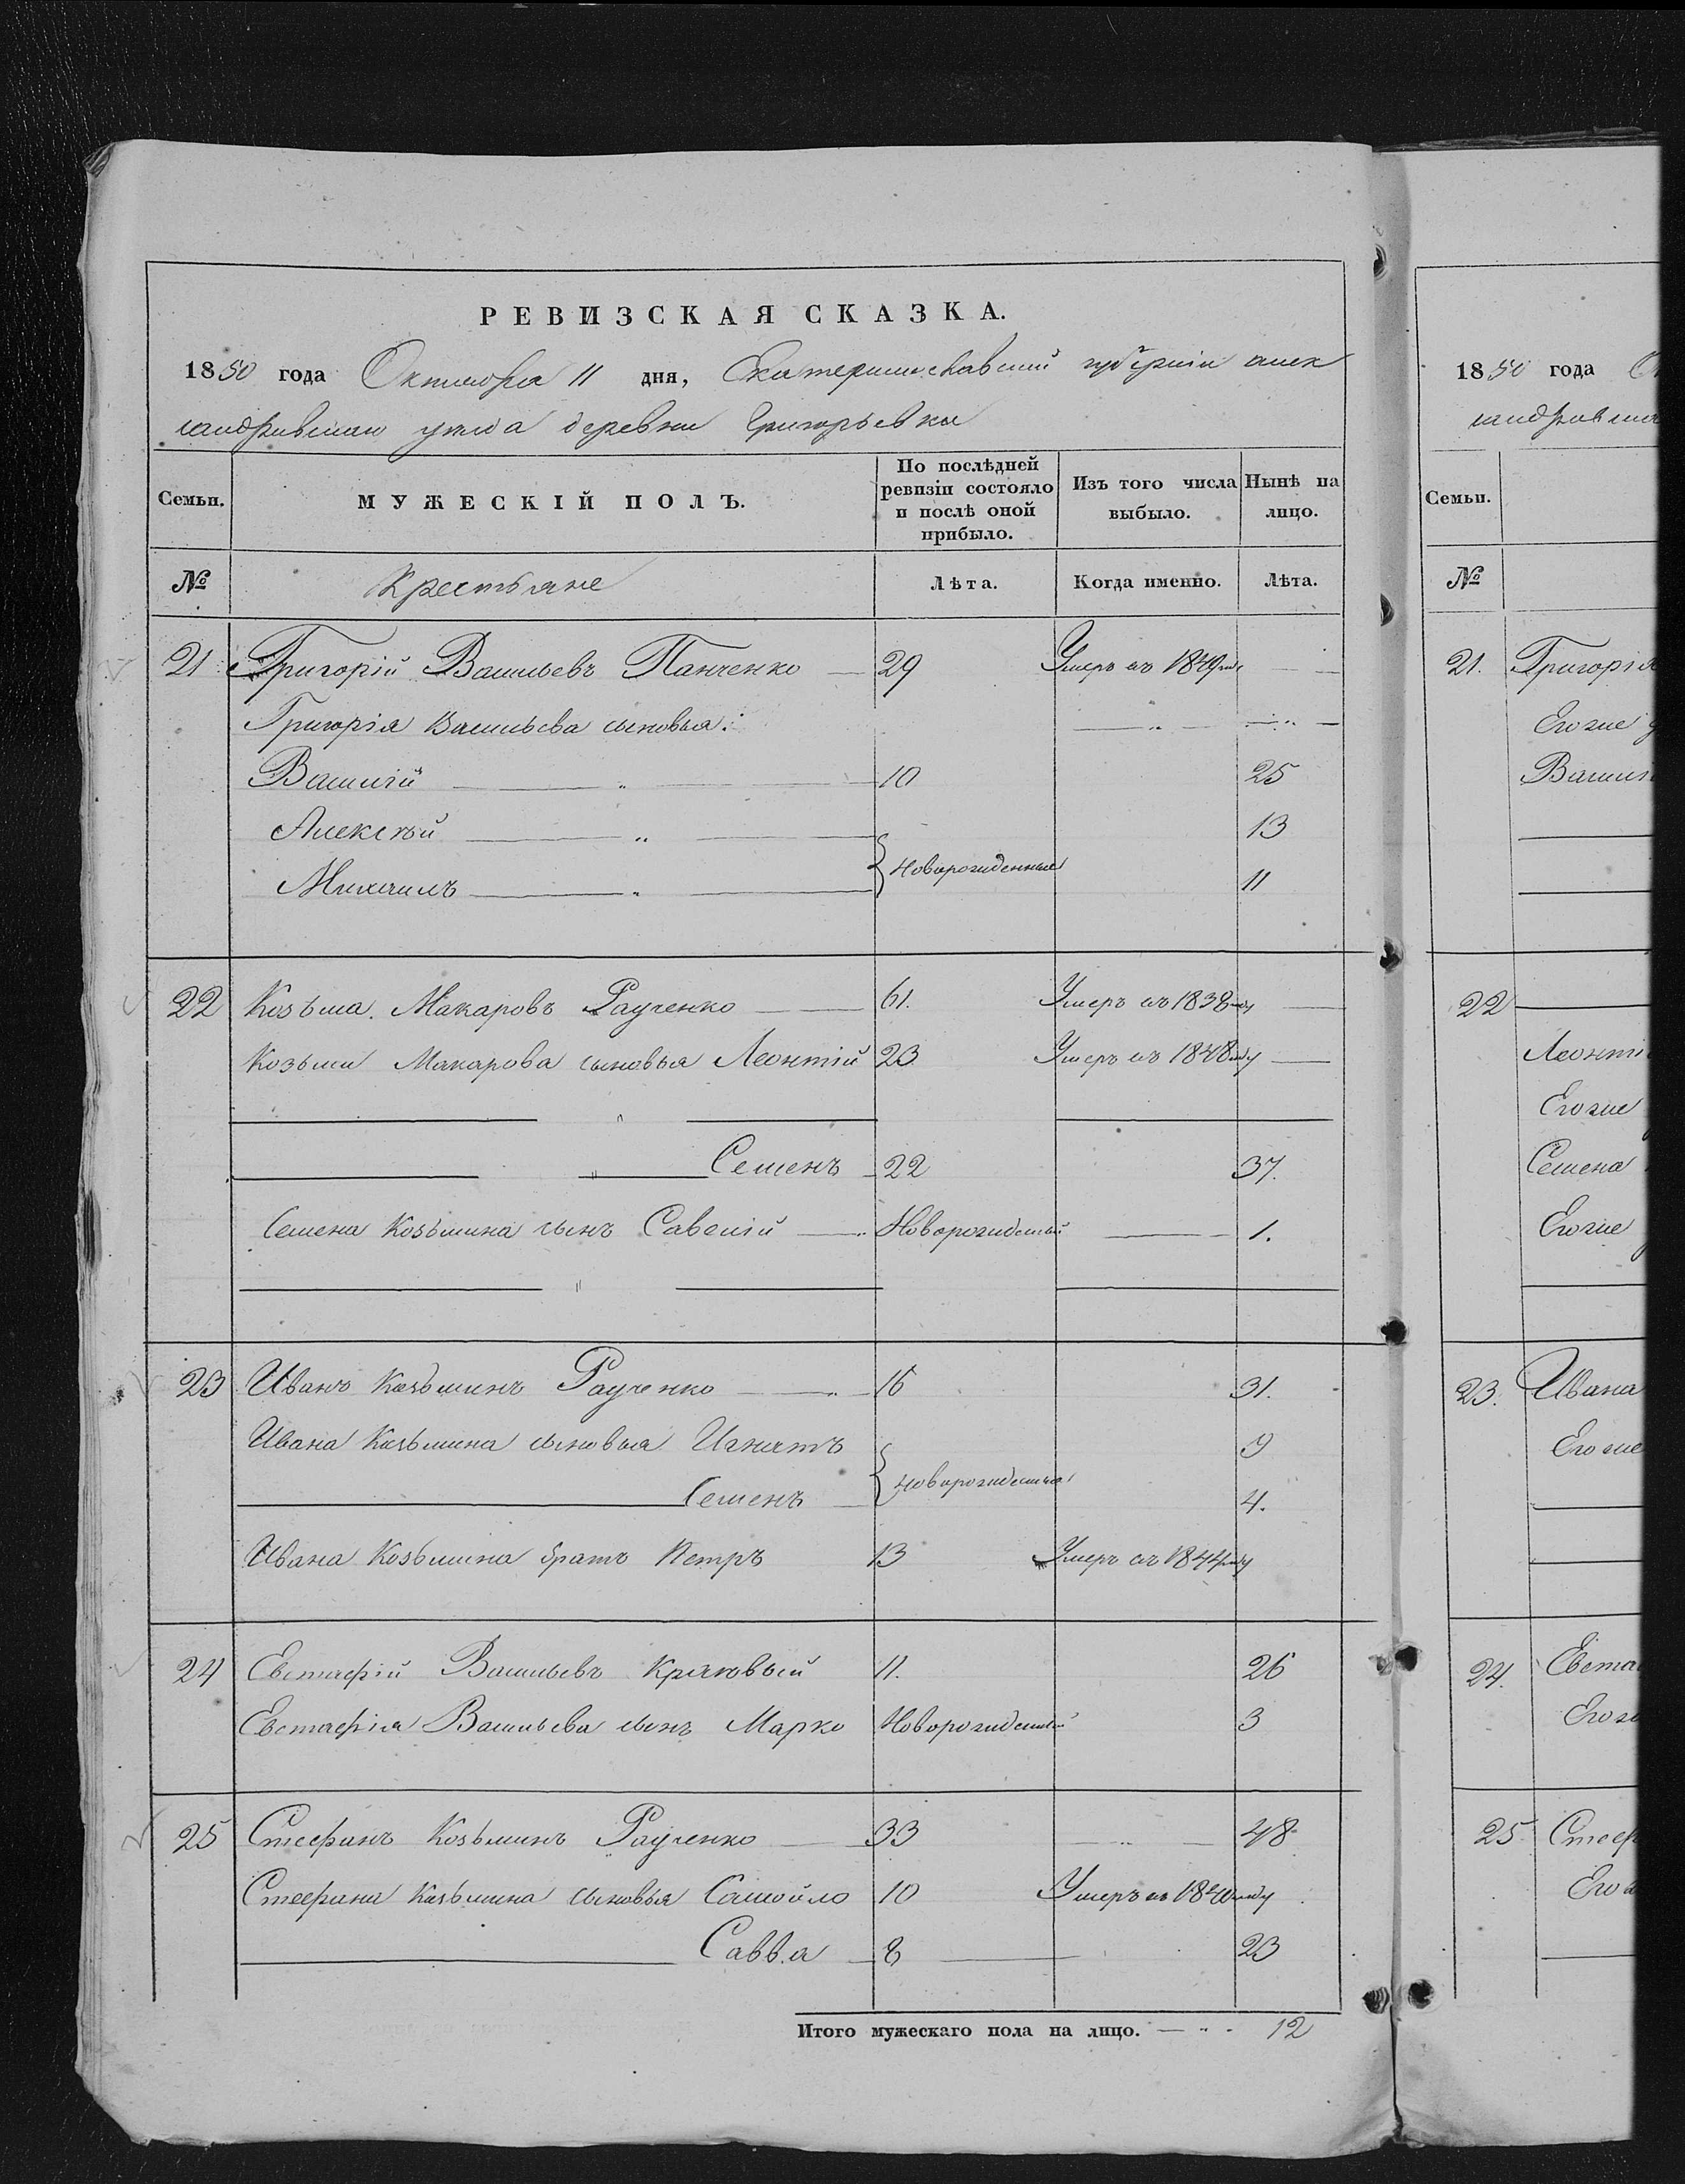 РЕВИЗСКАЯ СКАЗКА.
1850 года Октября 11 дня, Екатеринославской губерніи алек
сандровскаго уезда деревни Григорьевки
Семьи. МУЖЕСКІЙ ПОЛЪ. По послѣдней ревизіи состояло и послѣ оной прибыло. Изъ того числа выбыло. Нынѣ на лицо.
№ Крестьяне Лѣта. Когда именно. Лѣта.
21 Григорій Васильевъ Панченко 29 Умеръ въ 1849
Григорія Васильева сыновья:
Василій 10 25
Алексѣй 13
Новорожденные
Михаилъ 11
22 Козьма Макаровъ Раученко 61. Умеръ въ 1838
Козьмы Макарова сыновья Леонтій 23 Умеръ въ 1848 году
Семенъ 22 37.
Семена Козьмина сынъ Савелій Новорожденный 1.
23 Иванъ Козьминъ Раученко 16 31.
Ивана Козьмина сыновья Игнатъ 9
Новорожденные
Семенъ 4.
Ивана Козьмина братъ Петръ 13 Умеръ въ 1844 году
24 Евстафій Васильевъ Кряковый 11. 26
Евстафія Васильева сынъ Марко Новорожденный 3
25 Стефанъ Козьминъ Раученко 33 48
Стефана Козьмина сыновья Самойло 10 Умеръ въ 1840 году
Савва 8 23
Итого мужескаго пола на лицо. 12
1850 года
Семьи.
№
21. Григорія
Его же
22
Его же
Семена
Его же
23. Ивана
Его же
24.
25